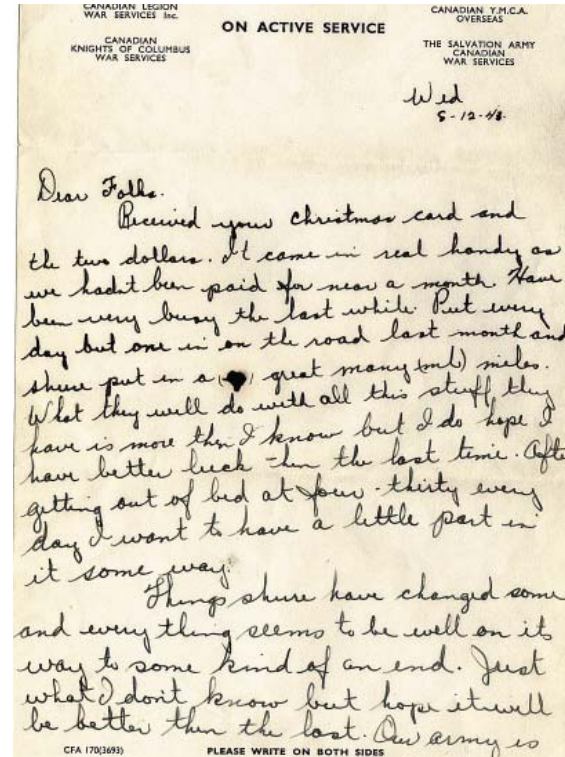 CANADIAN LEGION
WAR SERVICES Inc.
CANADIAN
KNIGHTS OF COLUMBUS
WAR SERVICES
ON ACTIVE SERVICE
CANADIAN Y.M.C.A.
OVERSEAS
THE SALVATION ARMY
CANADIAN
WAR SERVICES
Wed
8-12-43.
Dear Folks.
Received your Christmas card and
the two dollars. It came in real handy as
we hadnt been paid for near a month. Have
been very busy the last while. Put every
day but one in on the road last month and
shure put in a great many miles.
What they will do with all this stuff they
have is more then I know but I do hope I
have better luck then the last time. Afte
getting out of bed at four-thirty every
day I want to have a little part in
it some way.
Things shure have changed some
and every thing seems to be well on its
way to some kind of an end. Just
what I don't know but hope it will
be better then the last. Our army is
CFA 170(3693)
PLEASE WRITE ON BOTH SIDES